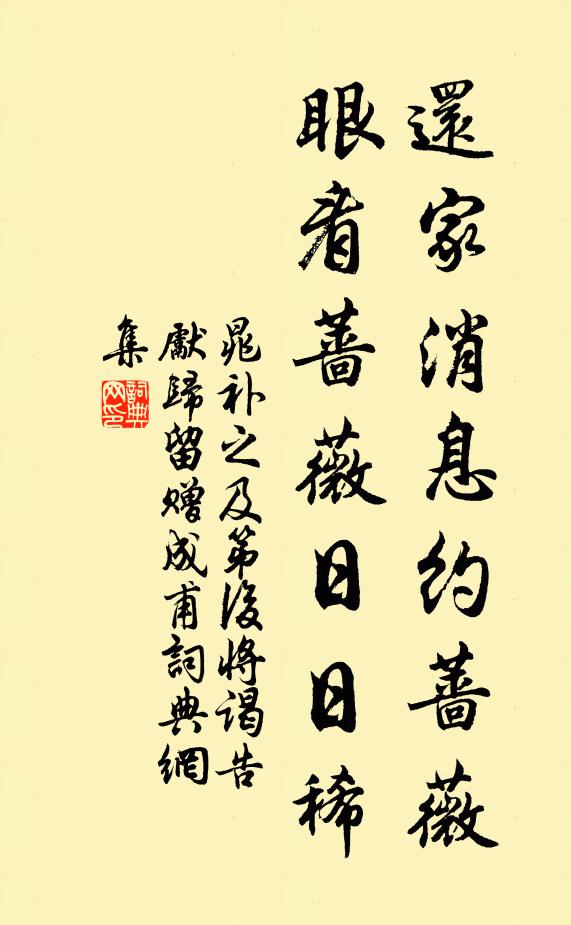 還家消息約薔薇
眼看薔薇日日稀
晁补之及第後將谒告
獻歸留赠成甫詞典網
集
詞典
网印